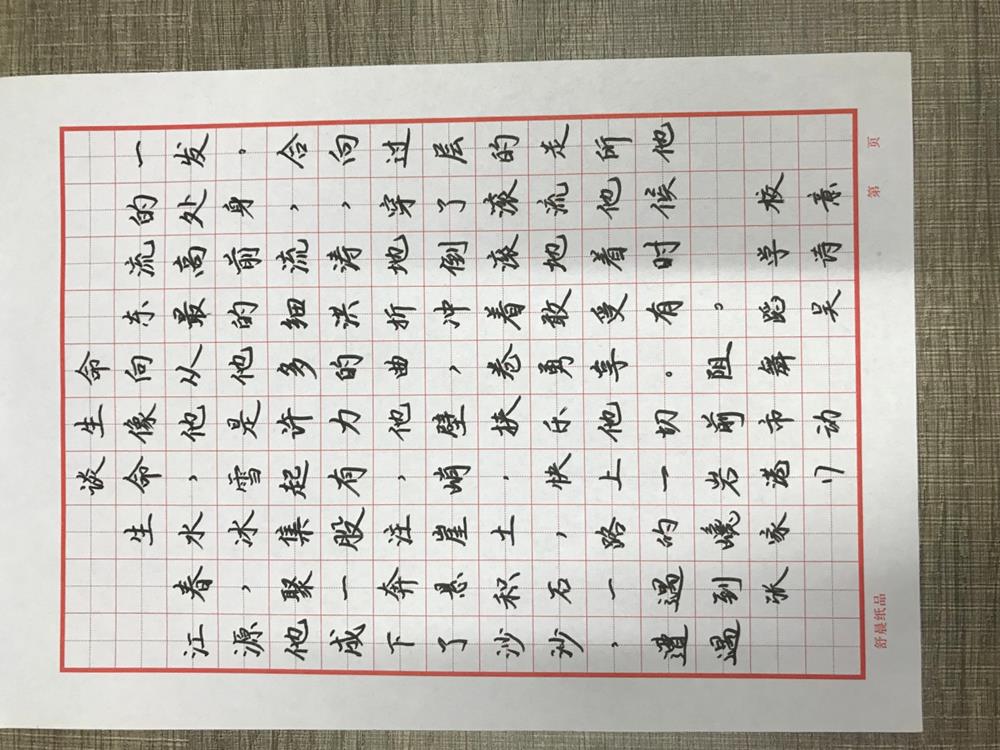 谈生命
生命像向东流的一
江春水，他从最高处发
源，冰雪是他的前身。
他聚集起许多细流，合
成一股有力的洪涛，向
下奔注，他曲折地穿过
了悬崖峭壁，冲倒了层
沙积土，挟卷着滚滚的
沙石，快乐勇敢地流走
，一路上他享受着他所
遭遇的一切。有时候他
遇到巉岩前阻。
张家港市舞蹈学校
动吴诗意
舒晨纸品 第 页